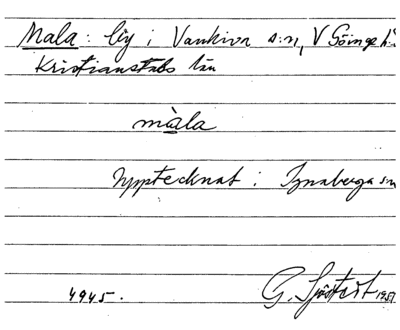 Mala: by i Vankiva s:n, V Göinge h:d
Kristianstads län
màla
Upptecknat i Ignaberga sn
4945. G. Sjöstedt 1951